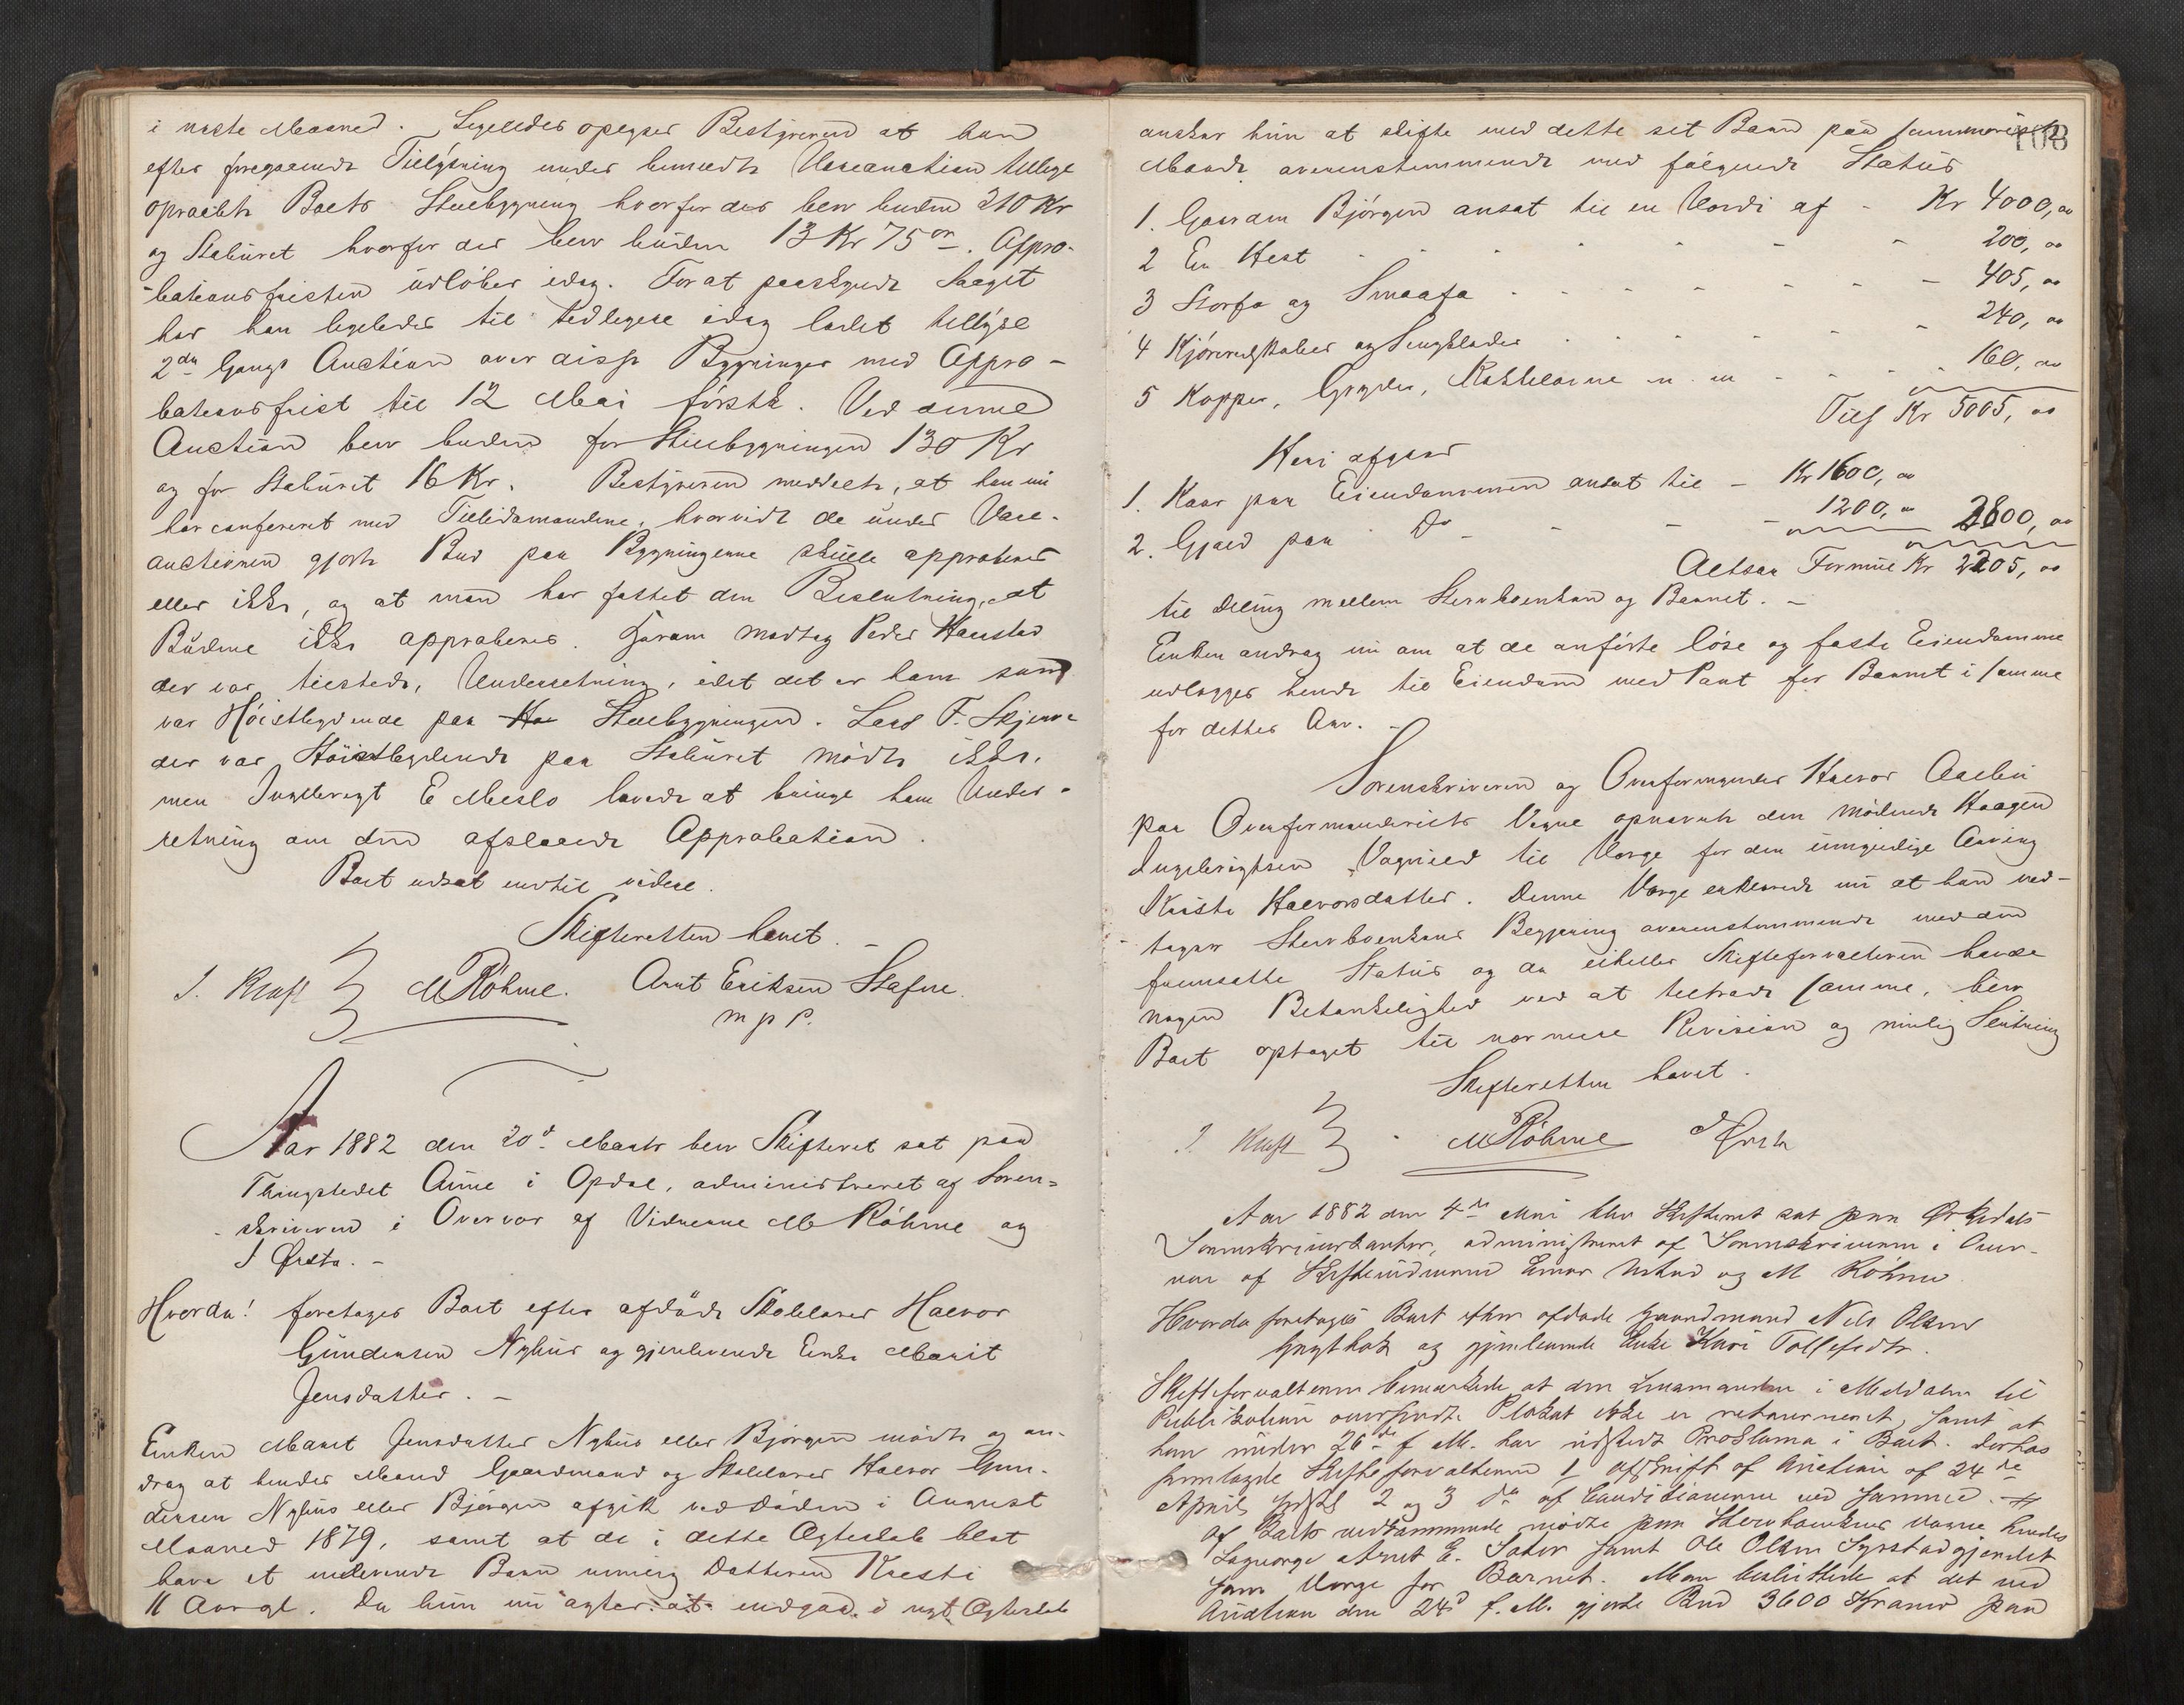 i næste Maaned. Ligeledes oplyser Bestyreren at han
efter foregaaende Tillysning under bemeldte Auction tillige
opraabte Boets Stuebygning hvorfor der blev buden 210 Kr
og Stabüret hvorfor der blev büden 13 Kr 75 ør. Appro-
bationsfristen üdløber idag. For at paaskynde Salget
har han ligeledes til Tidlegere idag ladet tillyse
2den Gangs Auction over disse Bygninger med Appro-
bationsfrist til 12 Mai førstk. Ved denne
Auction blev buden for Stuebygningen 130 Kr
og for Stabüret 16 Kr. Bestyreren meddelte, at han nü
har confereret med Tillidsmændene, hvorvidt de ünder
auctionen gjorte Bud paa Bygningerne skülle approberes
eller ikke, og at man har fattet den Beslutning, at
Büdene ikke approberes. Herom modtog Peder Haustad
der var tilstede, Underretning, idet det er ham som
var Høistbydende paa Stuebygningen. Lars F. Skjerve
der var Høistbydende paa Stabüret mødte ikke,
men Ingebrigt E Meslo lovede at bringe ham Under-
retning om den afslaaede Approbation.
Boet udsat indtil videre.
Skifteretten hævet.
J. Kraft M Röhme. Arnt Eriksen Stafne.
m p P.
Aar 1882 den 20d Marts blev Skifteret sat paa
Thingstedet Aüne i Opdal, administreret af Soren-
skriveren i Overvær af Vidnerne M Röhme og
J Ørsta.
Hvorda! foretoges Boet efter afdøde Skolelærer Halvor
Gündersen Nyhüs og gjenlevende Enke Marit
Jensdatter.
Enken Marit Jensdatter Nyhüs eller Bjørgen mødte og an-
drog at hendes Mand Gaardmand og Skolelærer Halvor Gun-
dersen Nyhüs eller Bjørgen afgik ved Døden i August
Maaned 1879, samt at de i dette Ægteskab blot
have et umyndig Barn Datteren Kristi
11 Aar gl. Da hün nü agter at indgaa i nyt Ægteskab
108
ønsker hün at skifte med dette sit Barn paa summarisk
Maade overensstemmende med følgende Status
1. Gaarden Bjørgen ansat til en Værdi af - Kr 4000,00
2 En Hest 200,00
3 Storfæ og Smaafæ 405,00
4 Kjøreredskaber og Sengklæder 240,00
5 Kopper, Gryder, Kakkelovne m. m 160,00
Tils Kr 5005,00
Heri afgaar
1. Kaar paa Eiendommen ansat til - Kr 1600,00
2. Gjæld paa Do 1200,00 2800,00
Altsaa Formüe Kr 2205,00
til Deling mellem Stervboenken og Barnet.
Enken androg nü om at de anførte løse og faste Eiendomme
udlægges hende til Eiendom med Pant for Barnet i samme
for dettes Arv.
Sorenskriveren og Overformynder Halvor Aalbu
paa Overformynderiets Vegne opnævnte den mødende Haagen
Ingebrigtsen Vognild til Værge for den ümyndige Arving
Kristi Halvorsdatter. Denne Værge erklærede nü at han ved-
tager Stervboenkens Begjæring overensstemmende med den
fremsatte Status og da eiheller Skifteforvalteren havde
nogen Betænkelighed ved at tiltræde samme, blev
Boet optaget til nærmere Revision og mülig Slütning
Skifteretten hævet.
J. Kraft M Röhme J Ørsta
Aar 1882 den 4de Mai blev Skifteret sat paa Ørkedals
Sorenskriverkontor, administreret af Sorenskriveren i Over-
vær af Skiftevidnerne Einar Ustad og M Röhme
Hvorda foretoges Boet efter afdøde Gaardmand Nils Olsen
og gjenlevende Enke Kari Tollefsdtr.
Skifteforvalteren bemærkede at den Lensmanden i Meldalen til
Publikation oversendte Plakat ikke er returneret, samt at
han under 26de f M. har üdstedt Proklama i Boet. Derhos
fremlagde Skifteforvalteren 1 Afskrift af Auction af 24de
April sidstl 2 og 3 do af Conditionerne ved samme.
Af Boets vedkommende mødte paa Stervboenkens Vegne hendes
Laugværge Arnt E. Sæter samt Ole Olsen Syrstadgjerdet
som Værge for Barnet. Man besluttede at det ved
Auction den 24d f. M. gjorte Bud 3600 Kroner paa